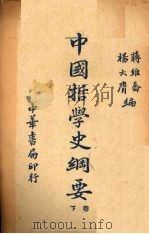 蔣維喬
楊大膺 編
中國哲學史綱要
卷下
中華書局印行